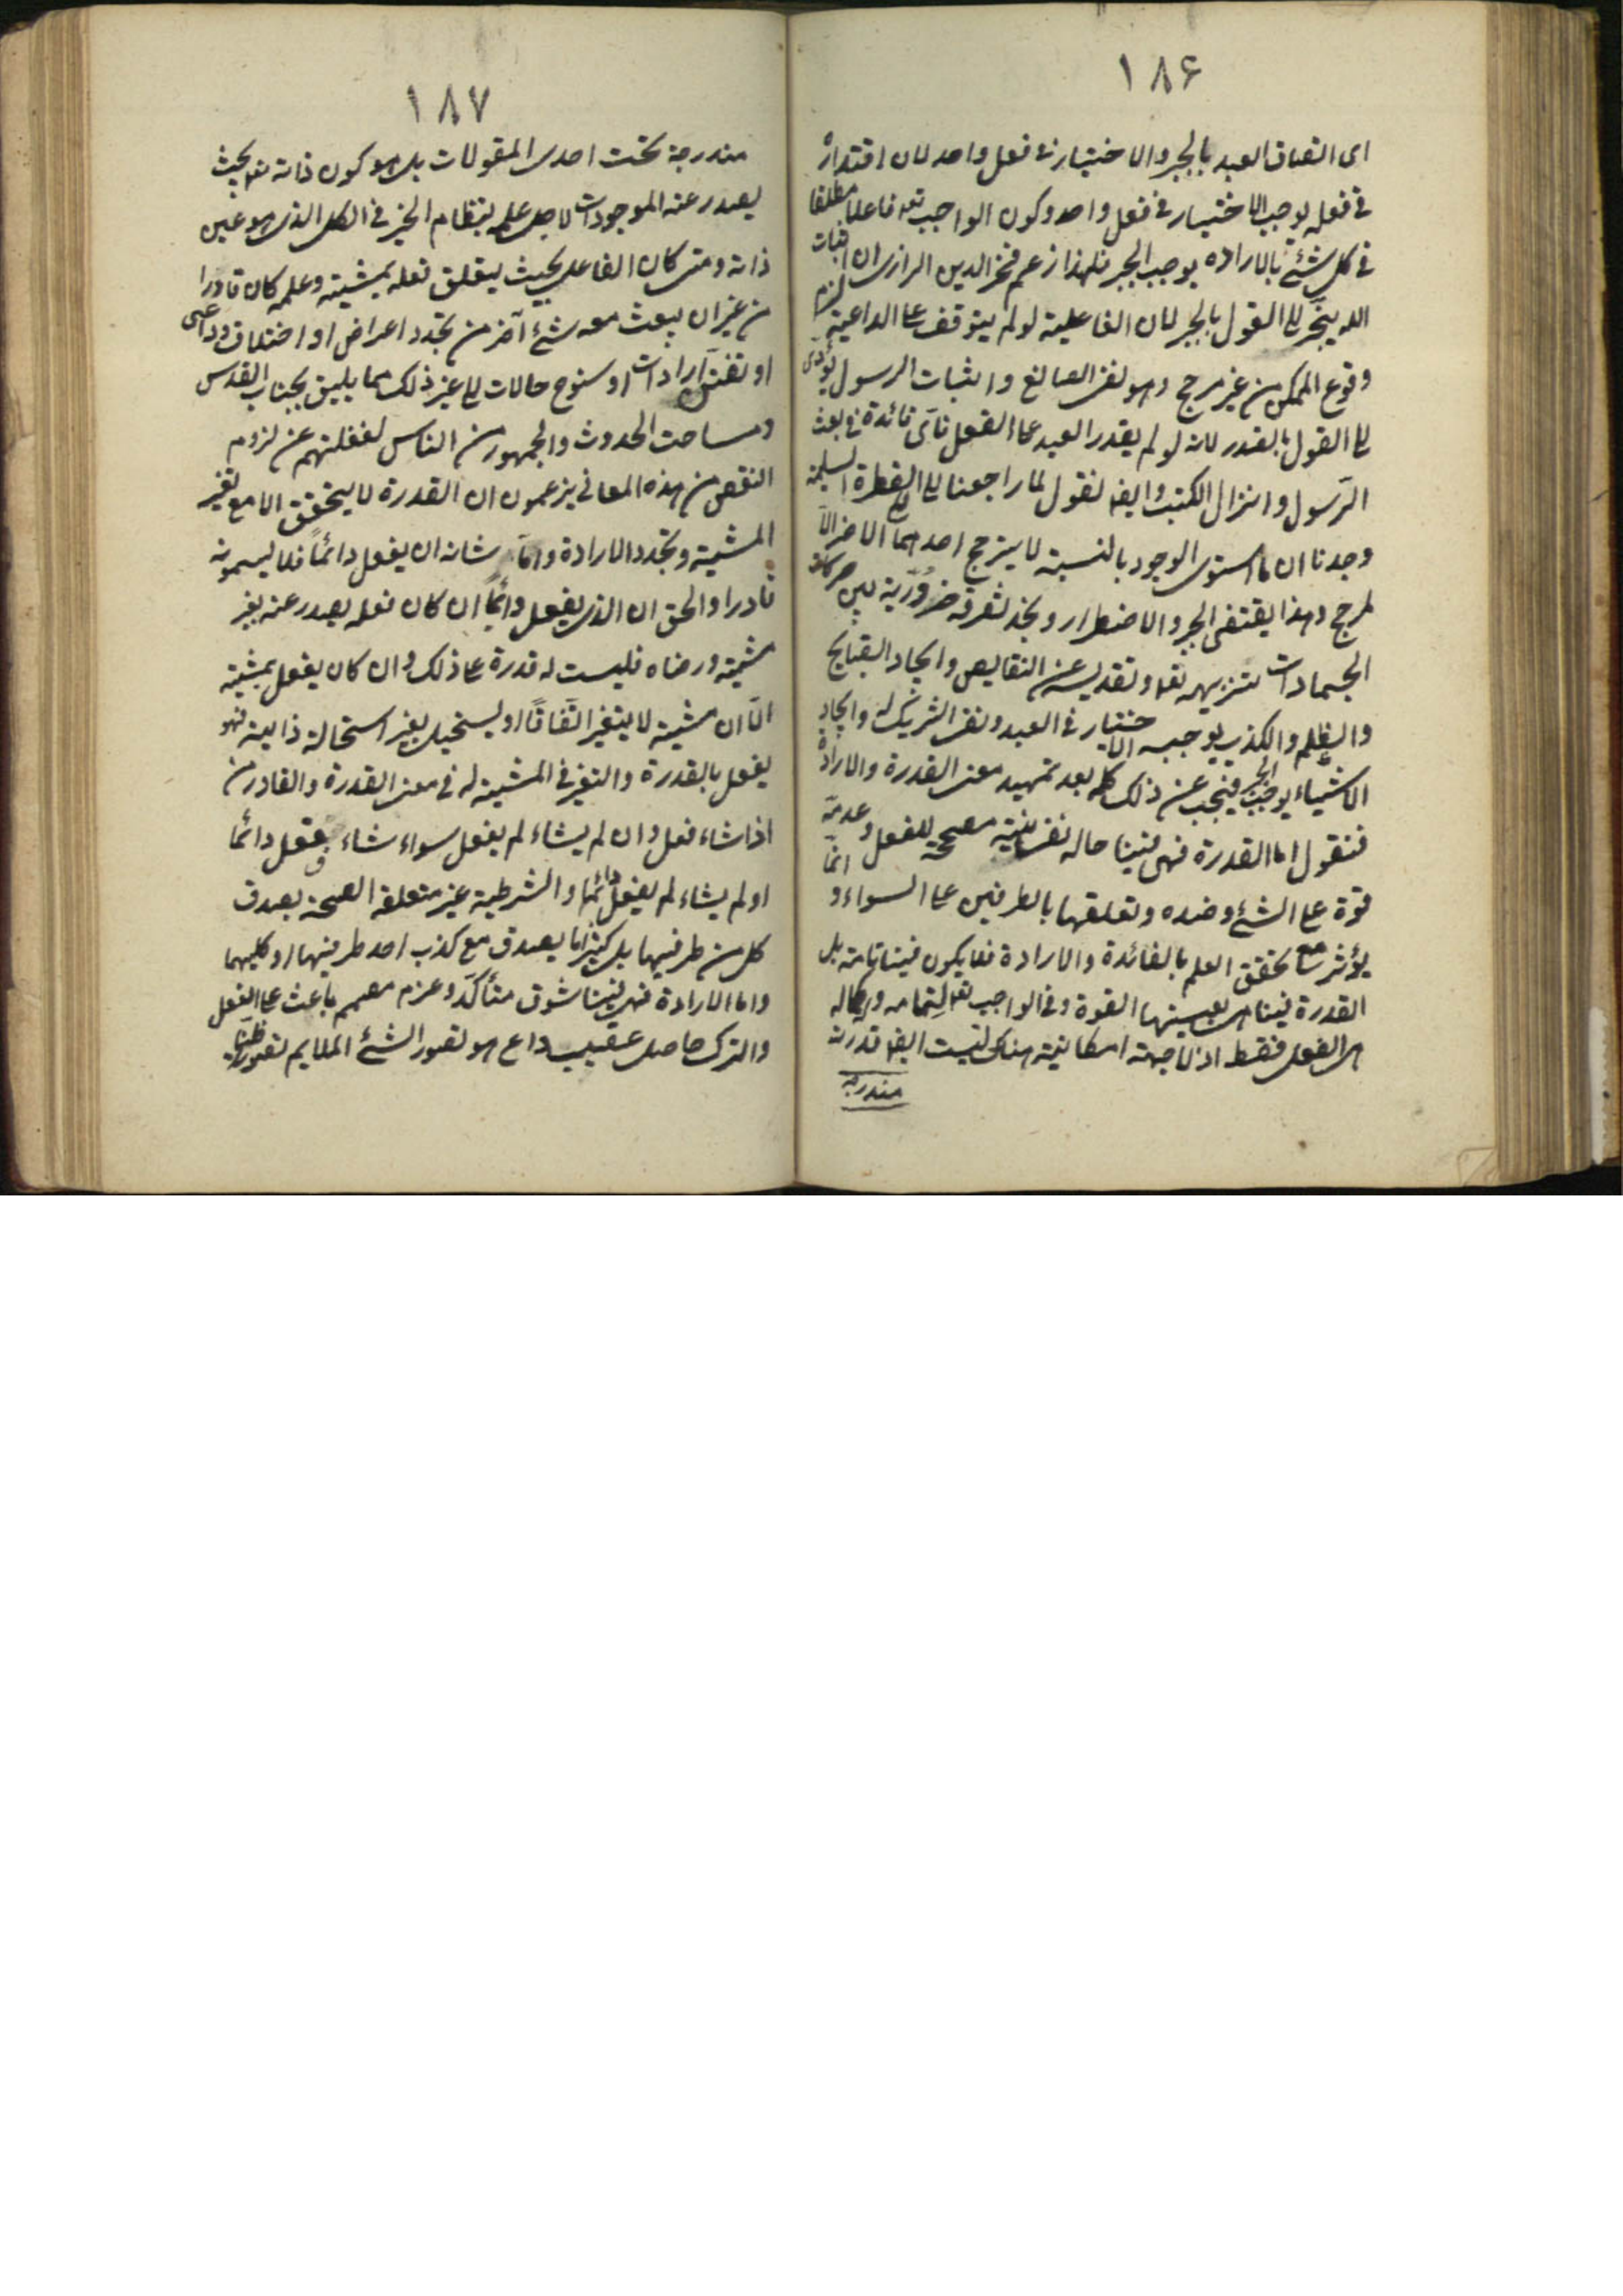 ١٨۶
اى اتصاف العبد بالجبر والاختيار فى فعل واحد لان اقتداره
فى فعله يوجب الاختيار فى فعل واحد وكون الواجب تعه فاعلا مطلقا
فى كل شئ بالاراده يوجب الجبر فلهذا زعم فخر الدين الرازى ان اثبات
الله ينجر الى القول بالجبر لان الفاعلية لو لم يتوقف على الداعية لزم
وقوع الممكن من غير مرجح وهو نفى الصانع واثبات الرسول يؤدى
الى القول بالقدر لانه لو لم يقدر العبد على الفعل فاى فائدة فى بعث
الرسول وانزال الكتب وايضا نقول لما راجعنا الى الفطرة السليمة
وجدنا ان ما استوى الوجود بالنسبة لا يترجح احدهما الاخر الا
لمرجح وهذا يقتضى الجبر والاضطرار ونجد تفرقة ضرورية بين حركات
الجمادات تنزيهه تعه وتقديسه عن النقايص وايجاد القبايح
والظلم والكذب يوجبه الاختيار فى العبد ونفى الشريك له وايجاد
الاشياء يوجب الجبر فيجب عن ذلك كله بعد تمهيد معنى القدرة والارادة
فنقول اما القدرة فهى فينا حاله نفسانية مصححة للفعل وعدمه
قوة على الشئ وضده وتعلقها بالطرفين على السواء و انما
يؤثر مع تحقق العلم بالفائدة والارادة فلا يكون فينا تامة بل
القدرة فينا هى بعينها القوة وفى الواجب تعه لتمامه وكماله
هى الفعل فقط اذ لا جهة امكانية هناك ليست ايضا قدرته
مندرجة
١٨٧
مندرجة تحت احدى المقولات بل هو كون ذاته تعه بحيث
يصدر عنه الموجودات لاجل علمه بنظام الخير فى الكل الذى هو عين
ذاته ومتى كان الفاعل بحيث يتعلق فعله بمشيته وعلمه كان قادرا
من غير ان يبعث معه شئ آخر من تجدد اعراض او اختلاف دواعى
او تفنن ارادات او سنوح حالات الى غير ذلك مما يليق بجناب القدس
وساحت الحدوث والجمهور من الناس لغفلتهم عن لزوم
النقص من هذه المعانى يزعمون ان القدرة لا يتحقق الا مع تغير
المشية وتجدد الارادة واما شانه ان يفعل دائماً فلا يسمونه
قادرا والحق ان الذى يفعل دائماً ان كان فعله يصدر عنه بغير
مشية ورضاه فليست له قدرة على ذلك وان كان يفعل بمشية
الّا ان مشية لا يتغير اتفاقًا او يستحيل بغير استحالة ذاتية فهو
يفعل بالقدرة والتغير فى المشية له فى معنى القدرة والقادر من
اذا شاء فعل وان لم يشاء لم يفعل سواء شاء ففعل دائما
او لم يشاء لم يفعل دائما والشرطية غير متعلقة الصحة بصدق
كل من طرفيها بل كثيرا ما يصدق مع كذب احد طرفيها او كليهما
واما الارادة فهى فينا شوق متأكد وعزم مصمم باعث على الفعل
والترك حاصل عقيب داع هو تصور الشئ الملايم تصورا ظنيا